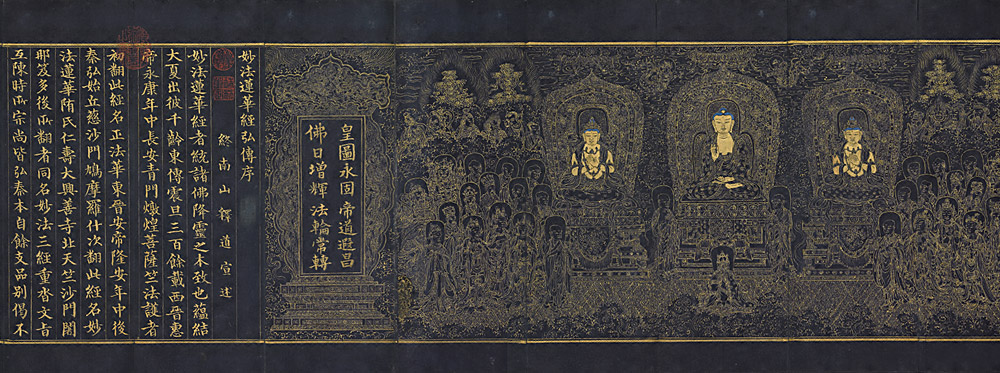 皇圖永固帝道遐昌
佛日增輝法輪常轉
妙法蓮華經弘傳序
終南山釋道宣述
妙法蓮華經者統諸佛降靈之本致也蘊結
大夏出彼千齡東傳震旦三百餘載西晉惠
帝永康年中長安青門燉煌菩薩竺法護者
初翻此經名正法華東晉安帝隆安年中後
秦弘始丘慈沙門鳩摩羅什次翻此經名妙
法蓮華隋氏仁壽大興善寺北天竺沙門闍
耶笈多後所翻者同名妙法三經重沓文旨
互陳時所宗尚皆弘秦本自餘支品別偈不